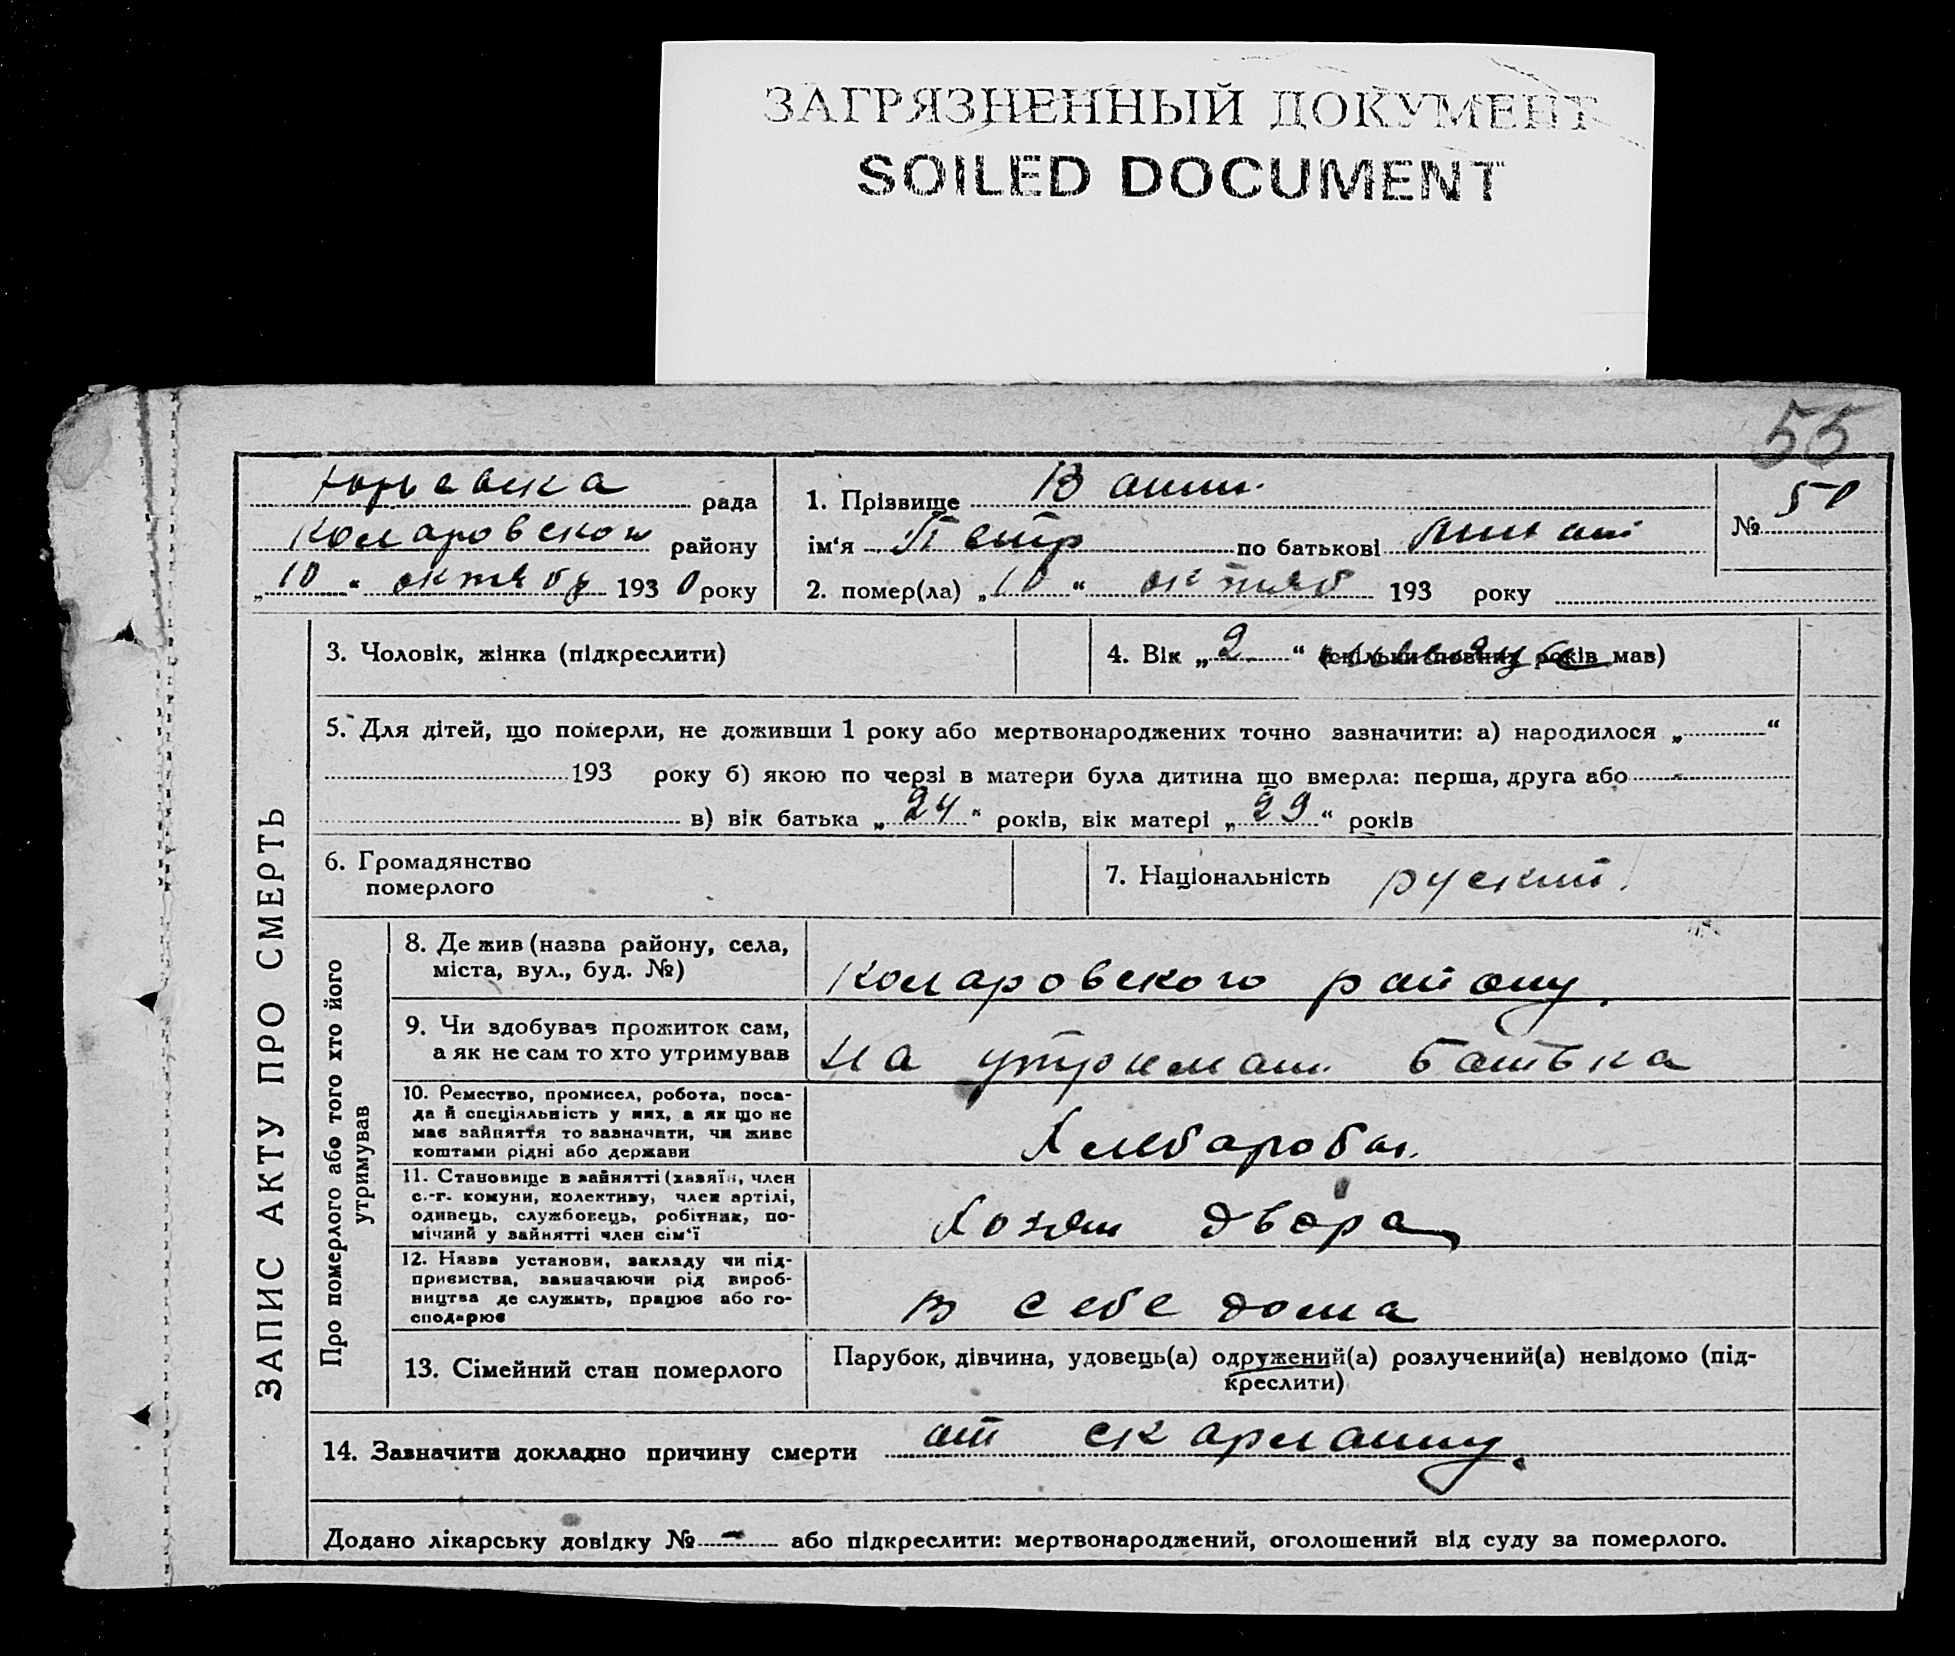 ЗАГРЯЗНЕННЫЙ ДОКУМЕНТ
SOILED DOCUMENT
55
Юрьевска рада
Коларовской району
„10“ октябр 1930 року
1. Прізвище
ім‘я Петр по батькові
2. помер(ла) „10“ октяб 193 року
№ 50
ЗАПИС АКТУ ПРО СМЕРТЬ
3. Чоловік, жінка (підкреслити)
4. Вік „2“ (скільки повних років мав)
5. Для дітей, що померли, не доживши 1 року або мертвонароджених точно зазначити: а) народилося „ “
193 року б) якою по черзі в матери була дитина що вмерла: перша, друга або
в) вік батька „24“ років, вік матері „29“ років
6. Громадянство
померлого
7. Національність руский
Про померлого або того хто його
утримував
8. Де жив (назва району, села,
міста, вул., буд. №)
Коларовского району
9. Чи здобував прожиток сам,
а як не сам то хто утримував
на утримани батька
10. Ремество, промисел, робота, поса-
да й спеціяльність у них, а як що не
має зайняття то зазначити, чи живе
коштами рідні або держави
Хлебароб
11. Становище в зайнятті (хазяїн, член
с.-г. комуни, колективу, член артілі,
одинець, службовець, робітник, по-
мічний у зайнятті член сім‘ї
Хозяин двора
12. Назва установи, закладу чи під-
приємства, зазначаючи рід вироб-
ництва де служить, працює або го-
сподарює
в себе дома
13. Сімейний стан померлого
Парубок, дівчина, удовець(а) одружений(а) розлучений(а) невідомо (під-
креслити)
14. Зазначити докладно причину смерти от
Додано лікарську довідку № - або підкреслити: мертвонароджений, оголошений від суду за померлого.